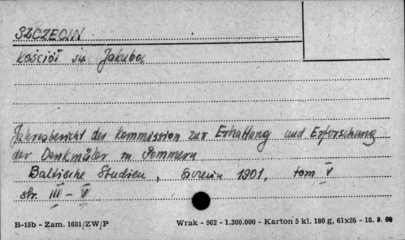 SZCZECIN
Kościół św. Jakuba
Jahresbericht der Kommission zur Erhaltung und Erforschung
der Denkmäler in Pommern
Baltische Studien, 1901, tom V
str. III - V
B-15b - Zam. 1681/ZW/P Wrak - 962 - 1.300.000 - Karton 5 kl. 180 g, 61x86 - 10. 9. 66